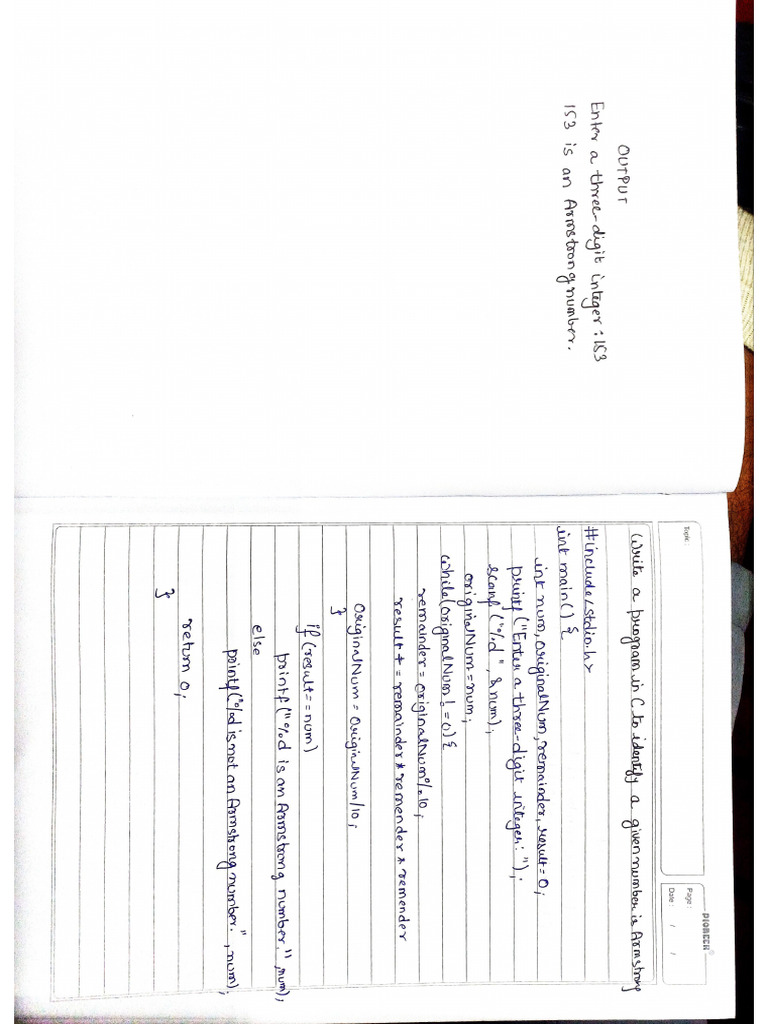 OUTPUT
Enter a three-digit integer : 153
153 is an Armstrong number.
Topic :
PIONEER®
Page :
Date : / /
Write a program in C to identify a given number is Armstrong
#include<stdio.h>
int main() {
int num, originalNum, remainder, result = 0;
printf ("Enter a three-digit integer: ");
scanf ("%d", &num);
originalNum = num;
while (originalNum ! = 0) {
remainder = originalNum % 10;
result + = remainder * remender * remender
originalNum = originalNum/10;
}
if (result == num)
printf ("%d is an Armstrong number", num);
else
printf ("%d is not an Armstrong number.", num);
return 0;
}